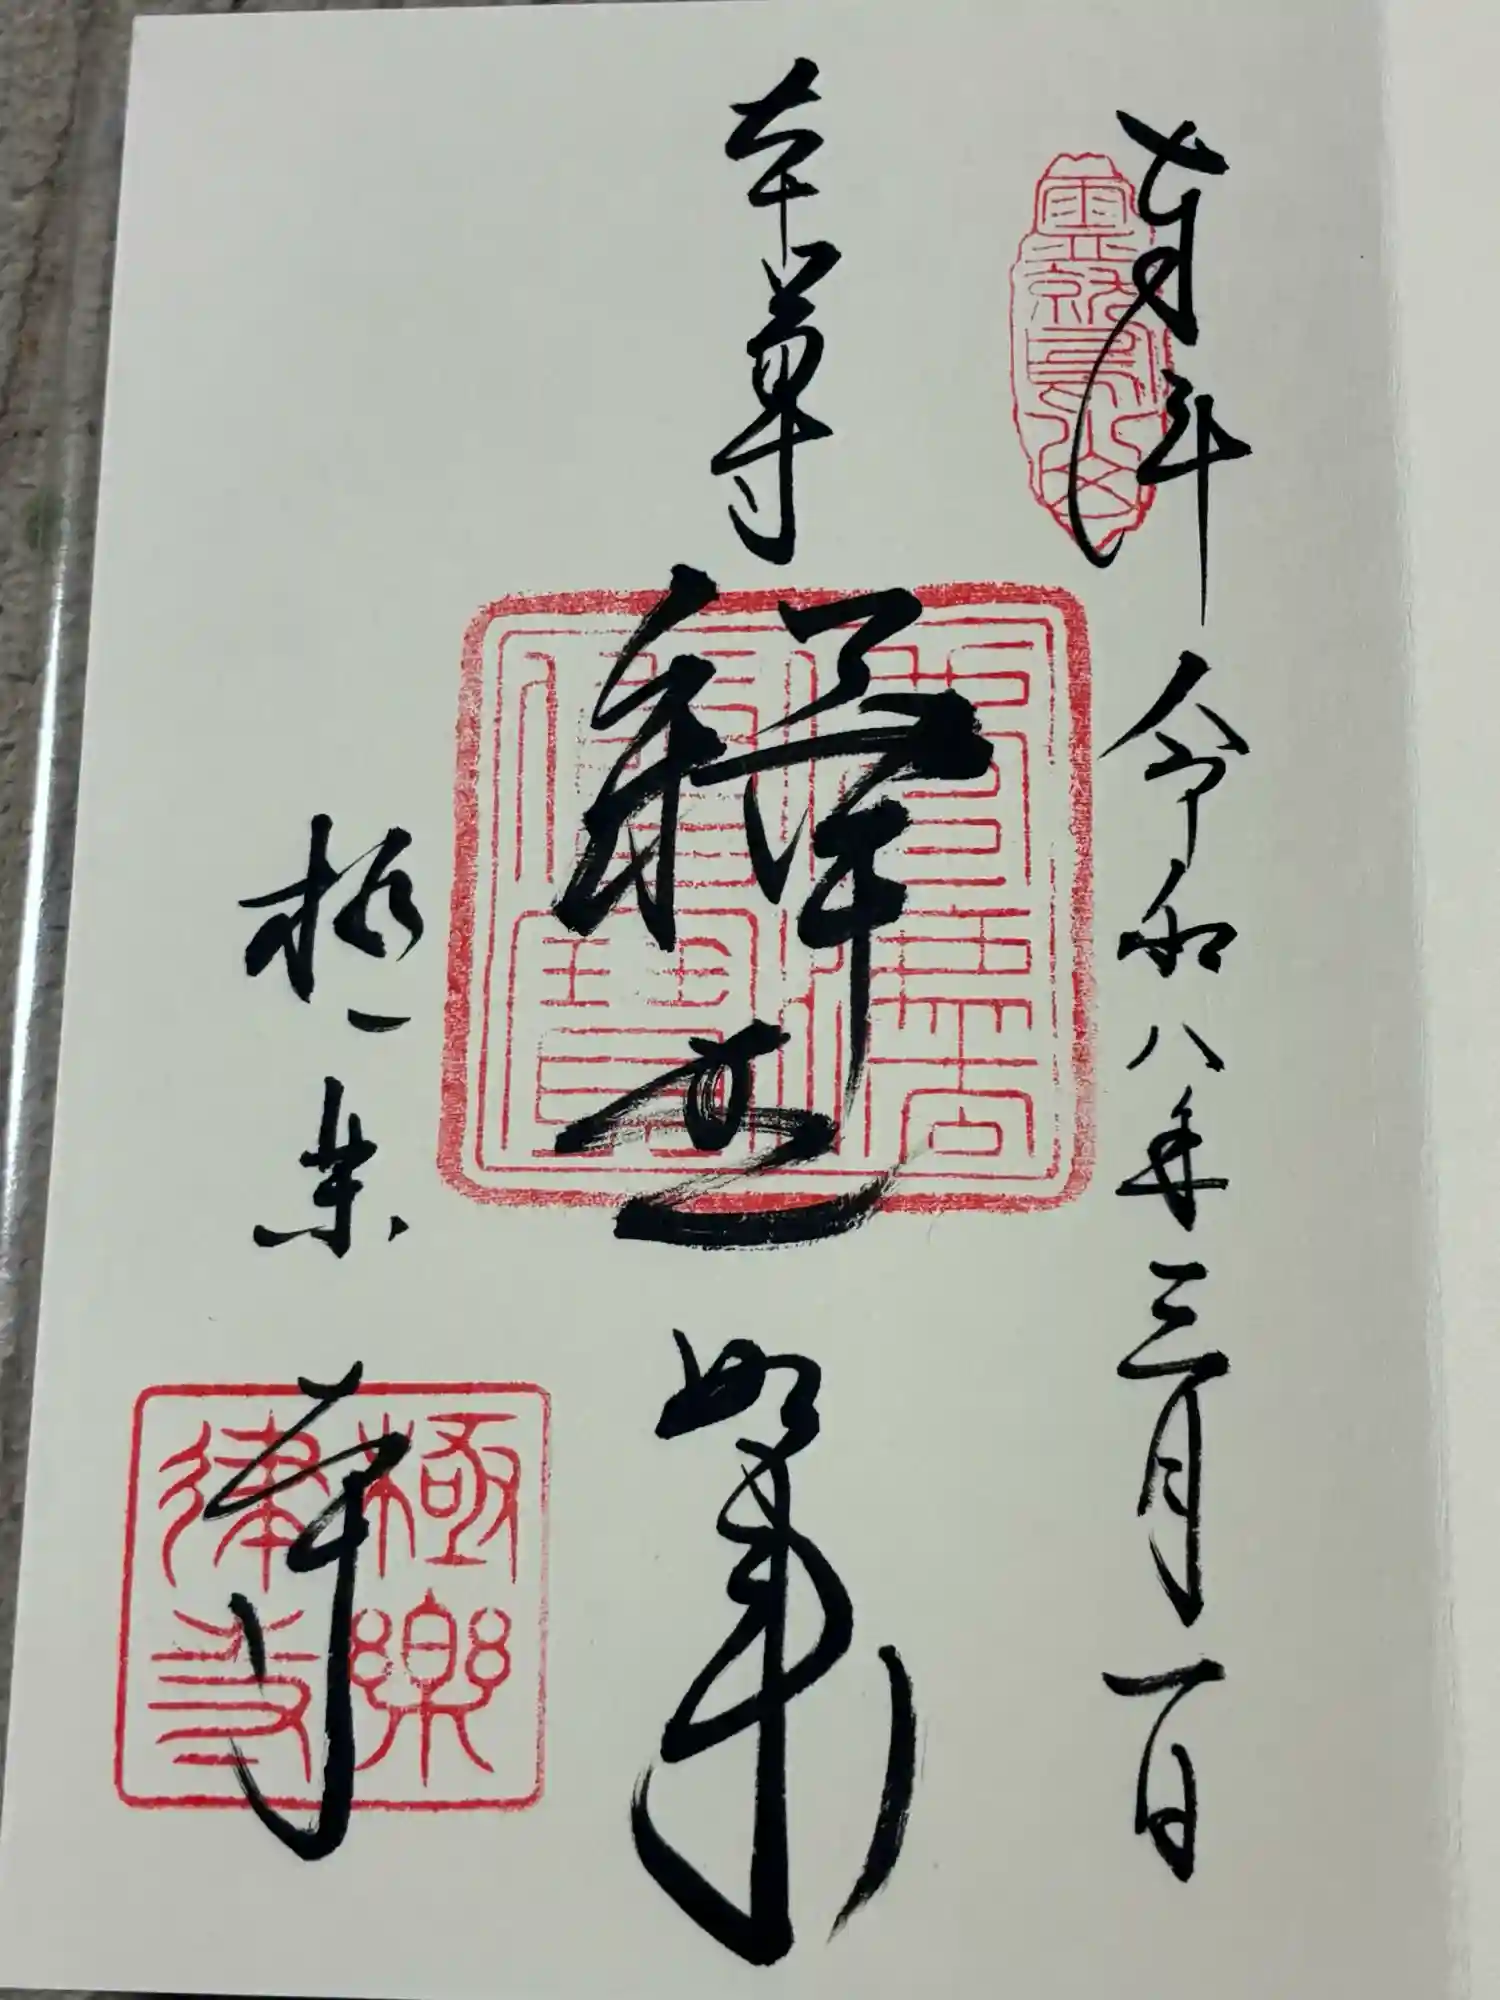 奉拝
令和八年三月一日
霊鷲山
本尊
釋迦如来
佛法僧寶
極楽寺
極樂律寺